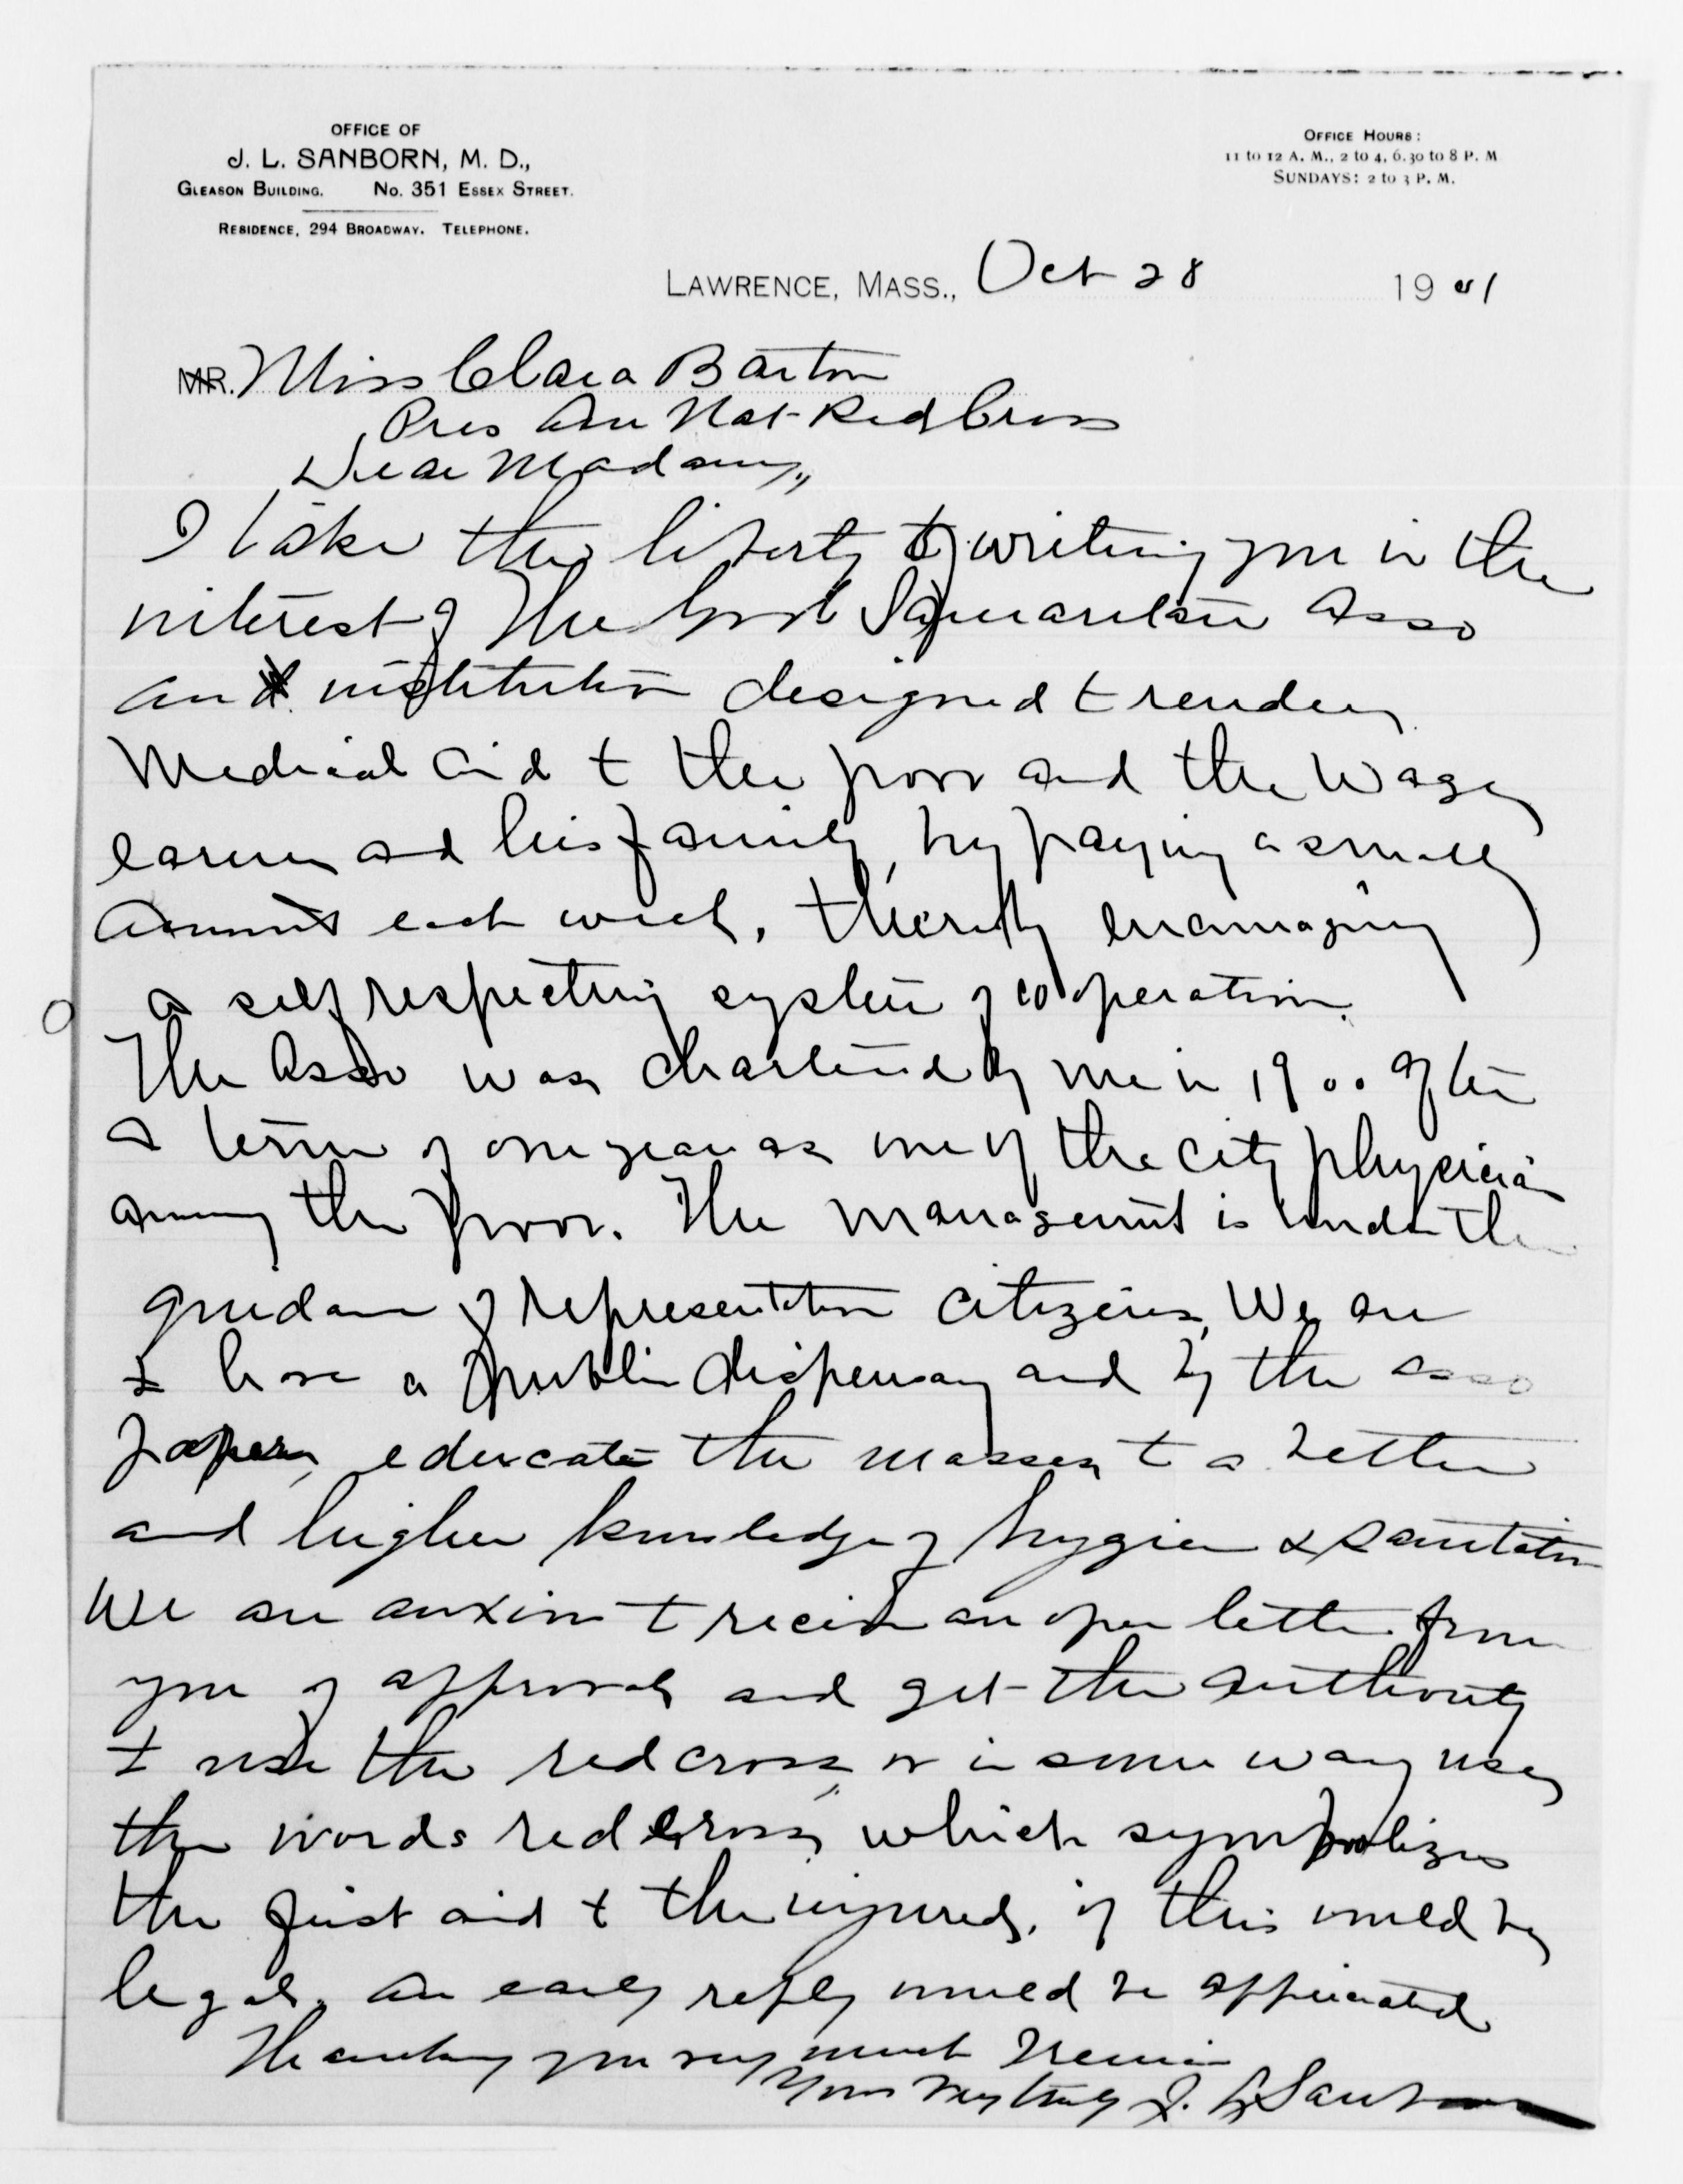 OFFICE OF
J. L. SANBORN, M. D.,
GLEASON BUILDING. No. 351 ESSEX STREET.
RESIDENCE, 294 BROADWAY. TELEPHONE.
OFFICE HOURS:
11 to 12 A. M., 2 to 4, 6.30 to 8 P. M
SUNDAYS: 2 to 3 P. M.
LAWRENCE, MASS., Oct 28 1901
MR. Miss Clara Barton
Pres Am Nat Red Cross
Dear Madam,,
I take the liberty of writing you in the
interest of The Good Samaritan Asso
an institution designed to render
Medical aid to the poor and the wage
earner and his family, by paying a small
amount each week, thereby encouraging
a self respecting system of cooperation.
The Asso was chartered by me in 1900 after
a term of one year as one of the city physician
among the poor. The management is under the
guidance of representative citizens, We are
to have a public dispensary and by the asso
papers, educate the masses to a better
and higher knowledge of hygiene & sanitation
We are anxious to receive an open letter from
you of approval and get the authority
to use the red cross, or in some way use
the words red cross, which symbolizes
the first aid to the injured, if this would be
legal, an early reply would be appreciated
Thanking you very much I remain
Yours very truly J. L. Sanborn